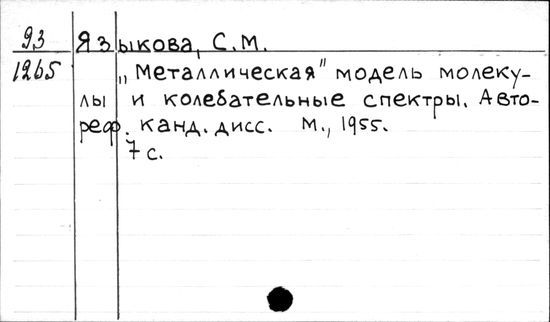 93 Языкова, С.М.
1265 „Металлическая" модель молеку-
лы и колебательные спектры. Авто-
реф. канд. дисс. М., 1955.
7 с.